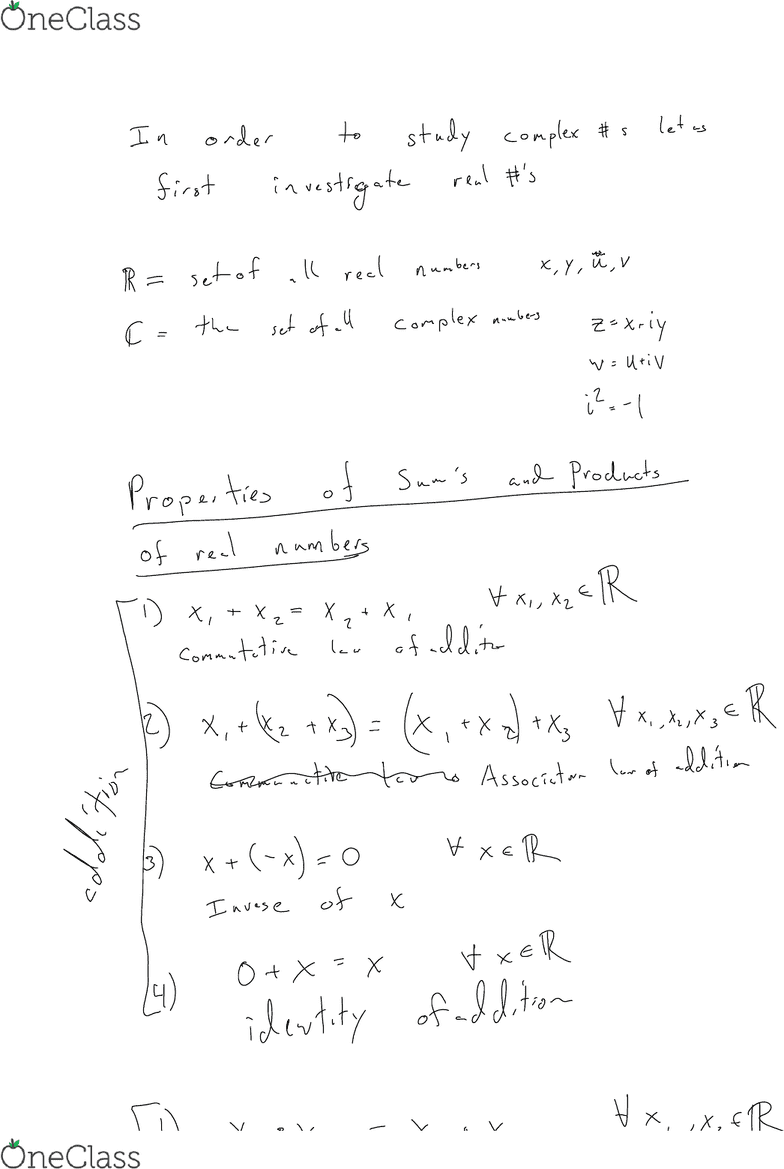 OneClass
In order to study complex #s let us
first investigate real #'s
ℝ = set of all real numbers x, y, u, v
ℂ = the set of all complex numbers z = x+iy
w = u+iv
i² = -1
Properties of Sum's and Products
of real numbers
1) x₁ + x₂ = x₂ + x₁ ∀ x₁, x₂ ∈ ℝ
Commutative law of addition
2) x₁ + (x₂ + x₃) = (x₁ + x₂) + x₃ ∀ x₁, x₂, x₃ ∈ ℝ
Associative law of addition
addition
3) x + (-x) = 0 ∀ x ∈ ℝ
Inverse of x
4) 0 + x = x ∀ x ∈ ℝ
identity of addition
1) ∀ x₁, x₂ ∈ ℝ
OneClass